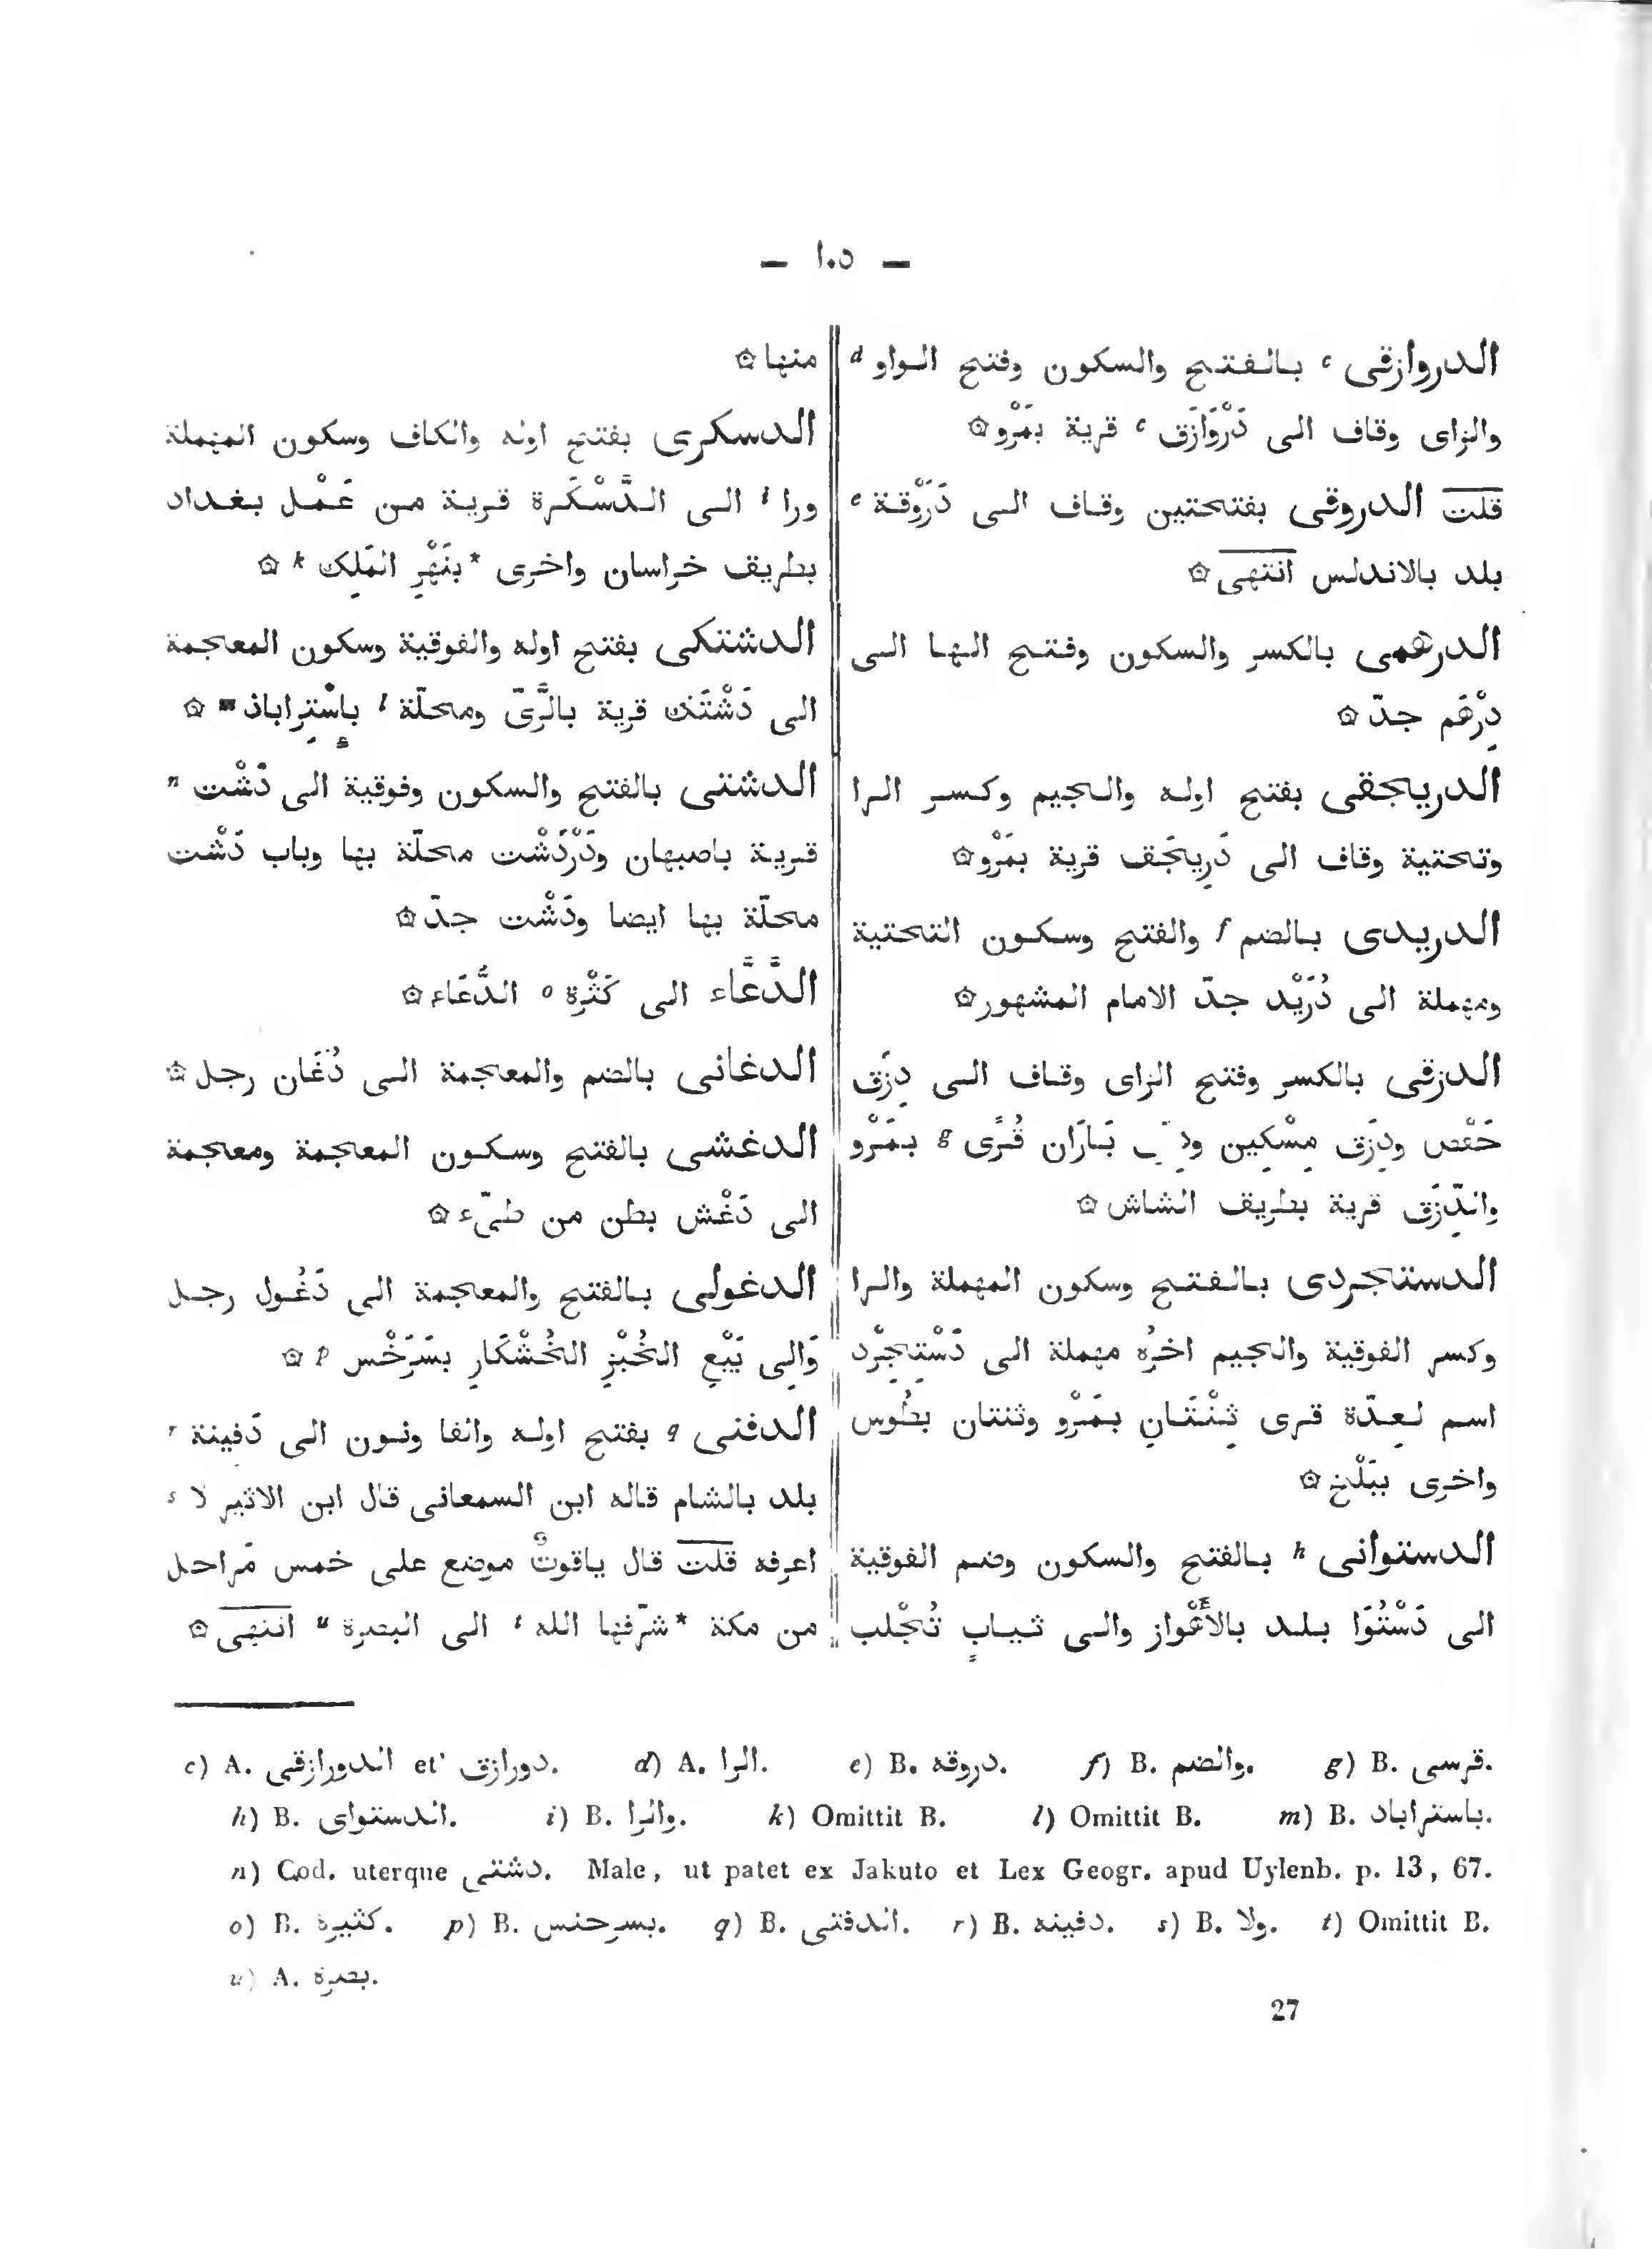 — ١٠٥ —
الدروازقى c بالفتح والسكون وفتح الواو d
والزاى وقاف الى دَرْوَازَق c قرية بمَرْو۞
قلت الدروقى بفتحتين وقاف الى دَرَوْقة e
بلد بالاندلس انتهى۞
الدرهمى بالكسر والسكون وفتح الها الى
دِرْهَم جدّ۞
الدريجقى بفتح اوله والجيم وكسر الرا
وتحتية وقاف الى دَرِيجَق قرية بمَرْو۞
الدريدى بالضم f والفتح وسكون التحتية
ومهملة الى دُرَيْد جدّ الامام المشهور۞
الدزقى بالكسر وفتح الزاى وقاف الى دِزَق
حَفْص ودِزَق مِسْكِين بَارَان قُرًى g بمَرْو
والدِّزَق قرية بطريق الشاش۞
الدستجردى بالفتح وسكون المهملة والرا
وكسر الفوقية والجيم اخرُه مهملة الى دَسْتِجِرْد
اسم لعِدّة قرى ثِنْتَانِ بمَرْو وثنتان بطُوس
واخرى ببَلْخ۞
الدستوانى h بالفتح والسكون وضم الفوقية
الى دَسْتُوَا بلد بالأَهْواز والى ثيابٍ تُجْلب
منها۞
الدسكرى بفتح اوله والكاف وسكون المهملة
ورا i الى الدَّسْكَرة قرية من عَمَل بغداد
بطريق خراسان واخرى *بنَهْرِ المَلِك k ۞
الدشتكى بفتح اوله والفوقية وسكون المعجمة
الى دَشْتَك قرية بالرَّىّ ومحلّة l بإسْتِراباذ m ۞
الدشتى بالفتح والسكون وفوقية الى دَشْت n
قرية باصبهان ودَرْدَشْت محلّة بها وباب دَشْت
محلّة بها ايضا ودَشْت جدّ۞
الدَّعَّاء الى كَثْرة o الدُّعَاء۞
الدغانى بالضم والمعجمة الى دُغَان رجل۞
الدغشى بالفتح وسكون المعجمة ومعجمة
الى دَغْش بطن من طىّء۞
الدغولى بالفتح والمعجمة الى دَغُول رجل
وَالى بَيْعِ الخُبْزِ الخُشْكَارِ بسَرَخْس p ۞
الدفنى q بفتح اوله والفا ونون الى دَفِينة r
بلد بالشام قاله ابن السمعانى قال ابن الاثير لا s
اعرفه قلت قال ياقوتٌ موضع على خمس مَراحل
من مكة *شرّفها الله t الى البصرة u انتهى۞
c) A. الدورازقى et دورازق. d) A. الرا. e) B. دروقه. f) B. والضم. g) B. قرسى.
h) B. الدستواى. i) B. والرا. k) Omittit B. l) Omittit B. m) B. باستراباد.
n) Cod. uterque دشتى. Male, ut patet ex Jakuto et Lex Geogr. apud Uylenb. p. 13, 67.
o) B. كثيرة. p) B. بسرحنس. q) B. الدفتى. r) B. دفينه. s) B. ولا. t) Omittit B.
u) A. بصرة.
27